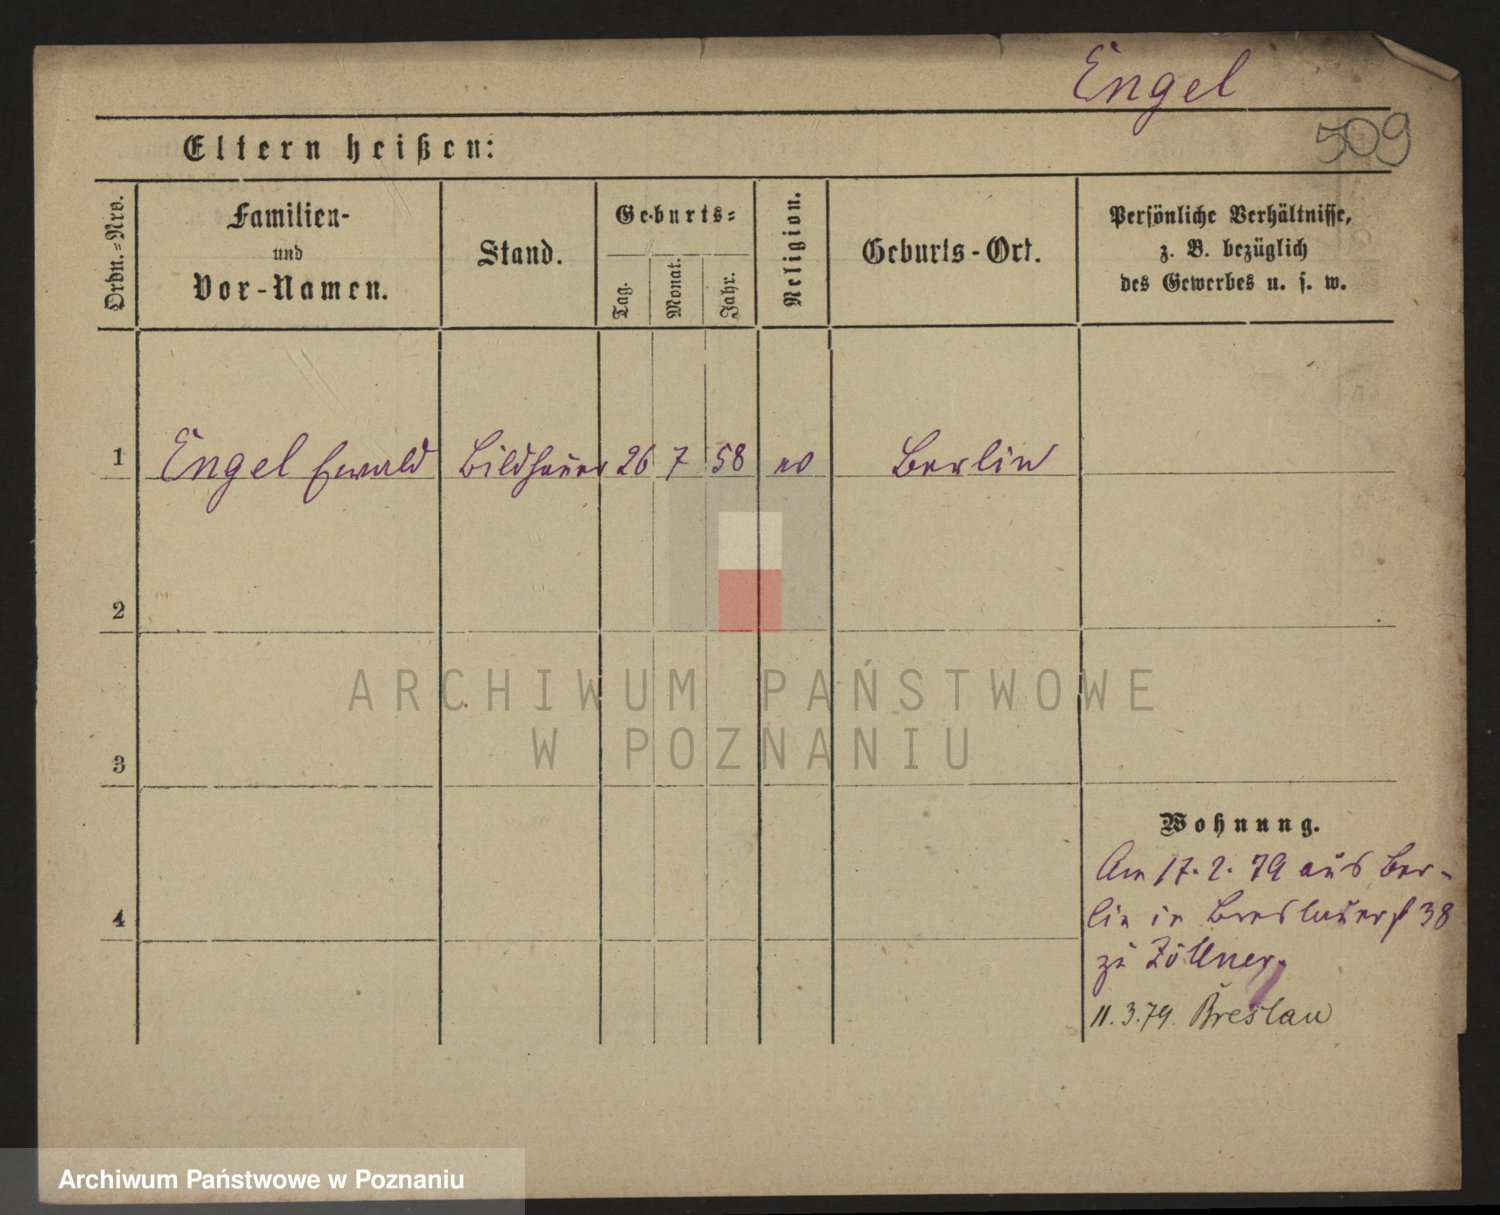 Engel
509
Eltern heißen:
Ordn.-Nro.
Familien-
und
Vor-Namen.
Stand.
Geburts-
Tag.
Monat.
Jahr.
Religion.
Geburts-Ort.
Persönliche Verhältnisse,
z. B. bezüglich
des Gewerbes u. s. w.
1 Engel Ewald Bildhauer 26 7 58 ev Berlin
2
3
4
Wohnung.
Am 17. 2. 79 aus Ber-
lin in Breslauerst 38
zu Zöllner.
11.3.79. Breslau
ARCHIWUM PAŃSTWOWE
W POZNANIU
Archiwum Państwowe w Poznaniu